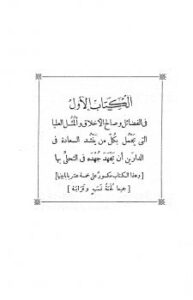 الكتاب الأول
فى الفضائل وصالح الأخلاق والمثل العليا
التى يجمل بكل من ينشد السعادة فى
الدارين أن يجهد جهده فى التحلى بها
[ وهذا الكتاب مكسور على خمسة عشر بابا بينها ]